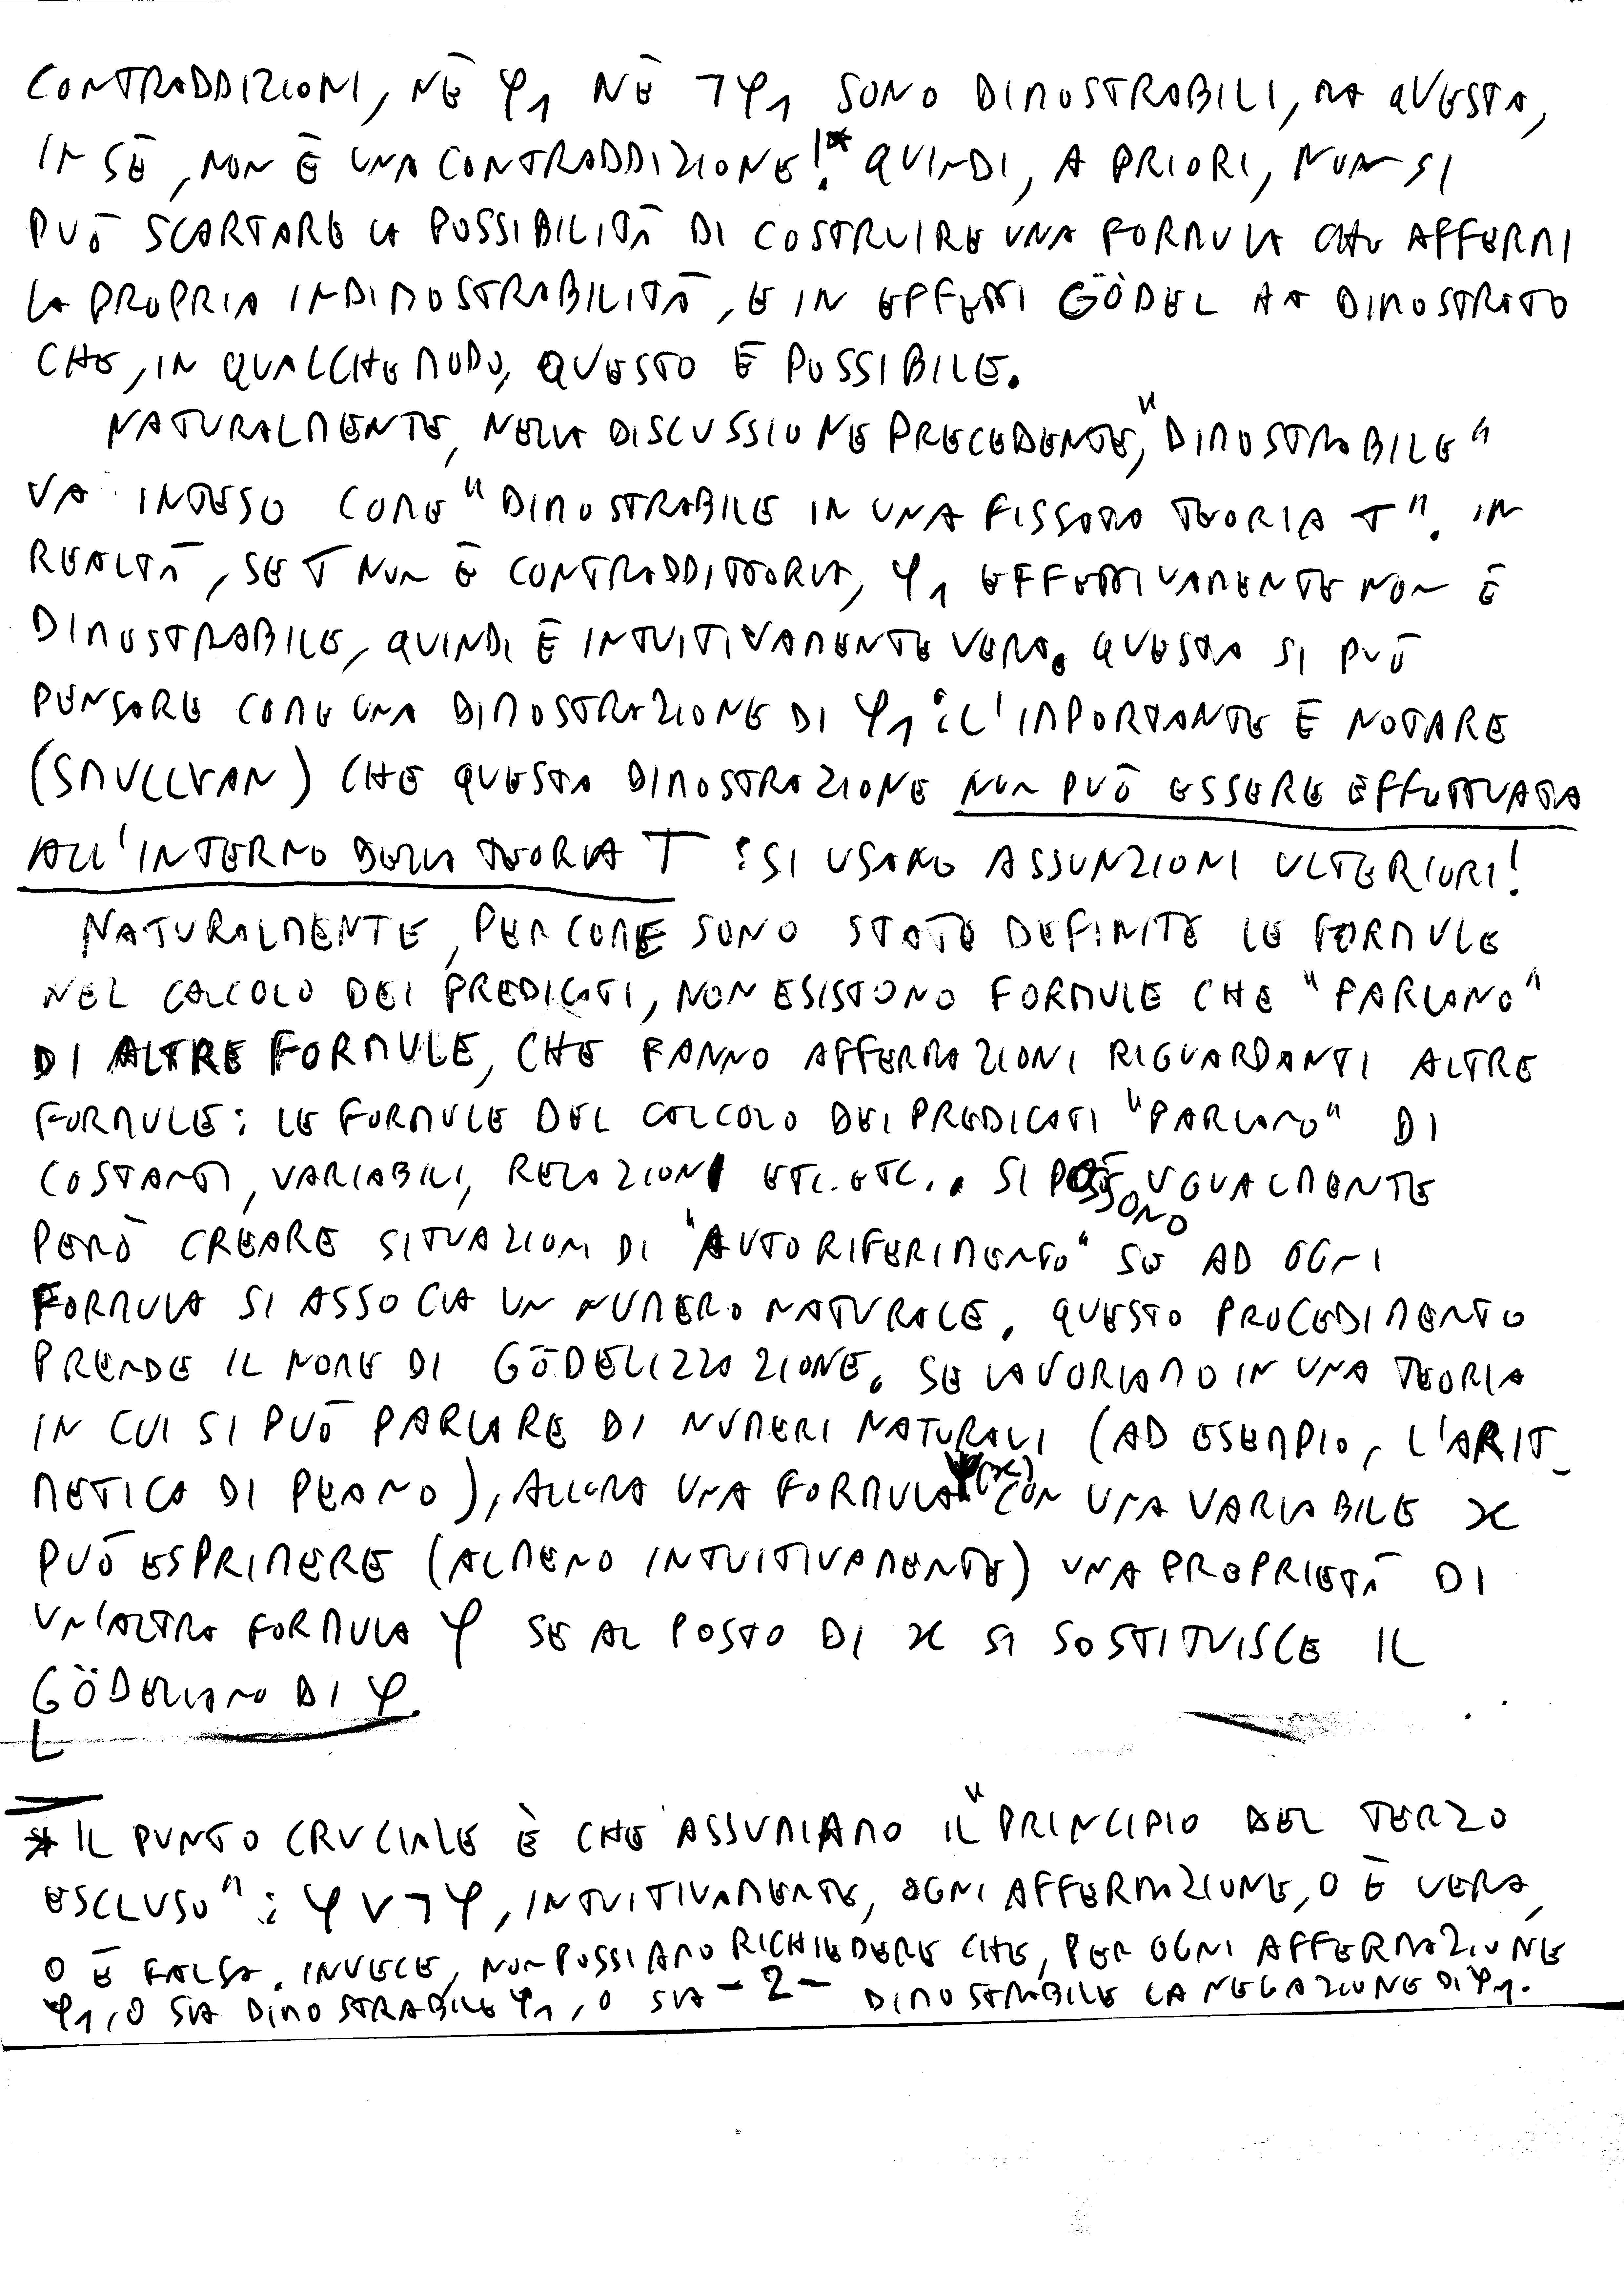 CONTRADDIZIONI, NÈ φ1 NÈ ¬φ1 SONO DIMOSTRABILI, MA QUESTA,
IN SÈ, NON È UNA CONTRADDIZIONE!* QUINDI, A PRIORI, NON SI
PUÒ SCARTARE LA POSSIBILITÀ DI COSTRUIRE UNA FORMULA CHE AFFERMI
LA PROPRIA INDIMOSTRABILITÀ, E IN EFFETTI GÖDEL HA DIMOSTRATO
CHE, IN QUALCHE MODO, QUESTO È POSSIBILE.
NATURALMENTE, NELLA DISCUSSIONE PRECEDENTE, "DIMOSTRABILE"
VA INTESO COME "DIMOSTRABILE IN UNA FISSATA TEORIA T". IN
REALTÀ, SE T NON È CONTRADDITTORIA, φ1 EFFETTIVAMENTE NON È
DIMOSTRABILE, QUINDI È INTUITIVAMENTE VERA. QUESTA SI PUÒ
PENSARE COME UNA DIMOSTRAZIONE DI φ1: L'IMPORTANTE È NOTARE
(SMULLYAN) CHE QUESTA DIMOSTRAZIONE NON PUÒ ESSERE EFFETTUATA
ALL'INTERNO DELLA TEORIA T: SI USANO ASSUNZIONI ULTERIORI!
NATURALMENTE, PER COME SONO STATE DEFINITE LE FORMULE
NEL CALCOLO DEI PREDICATI, NON ESISTONO FORMULE CHE "PARLANO"
DI ALTRE FORMULE, CHE FANNO AFFERMAZIONI RIGUARDANTI ALTRE
FORMULE: LE FORMULE DEL CALCOLO DEI PREDICATI "PARLANO" DI
COSTANTI, VARIABILI, RELAZIONI ETC. ETC.. SI POSSONO UGUALMENTE
PERÒ CREARE SITUAZIONI DI "AUTORIFERIMENTO" SE AD OGNI
FORMULA SI ASSOCIA UN NUMERO NATURALE. QUESTO PROCEDIMENTO
PRENDE IL NOME DI GÖDELIZZAZIONE. SE LAVORIAMO IN UNA TEORIA
IN CUI SI PUÒ PARLARE DI NUMERI NATURALI (AD ESEMPIO, L'ARIT-
METICA DI PEANO), ALLORA UNA FORMULA ψ(x) CON UNA VARIABILE x
PUÒ ESPRIMERE (ALMENO INTUITIVAMENTE) UNA PROPRIETÀ DI
UN'ALTRA FORMULA φ SE AL POSTO DI x SI SOSTITUISCE IL
GÖDELIANO DI φ.
* IL PUNTO CRUCIALE È CHE ASSUMIAMO IL "PRINCIPIO DEL TERZO
ESCLUSO": φ ∨ ¬φ, INTUITIVAMENTE, OGNI AFFERMAZIONE, O È VERA,
O È FALSA. INVECE, NON POSSIAMO RICHIEDERE CHE, PER OGNI AFFERMAZIONE
φ1, O SIA DIMOSTRABILE φ1, O SIA DIMOSTRABILE LA NEGAZIONE DI φ1.
-2-